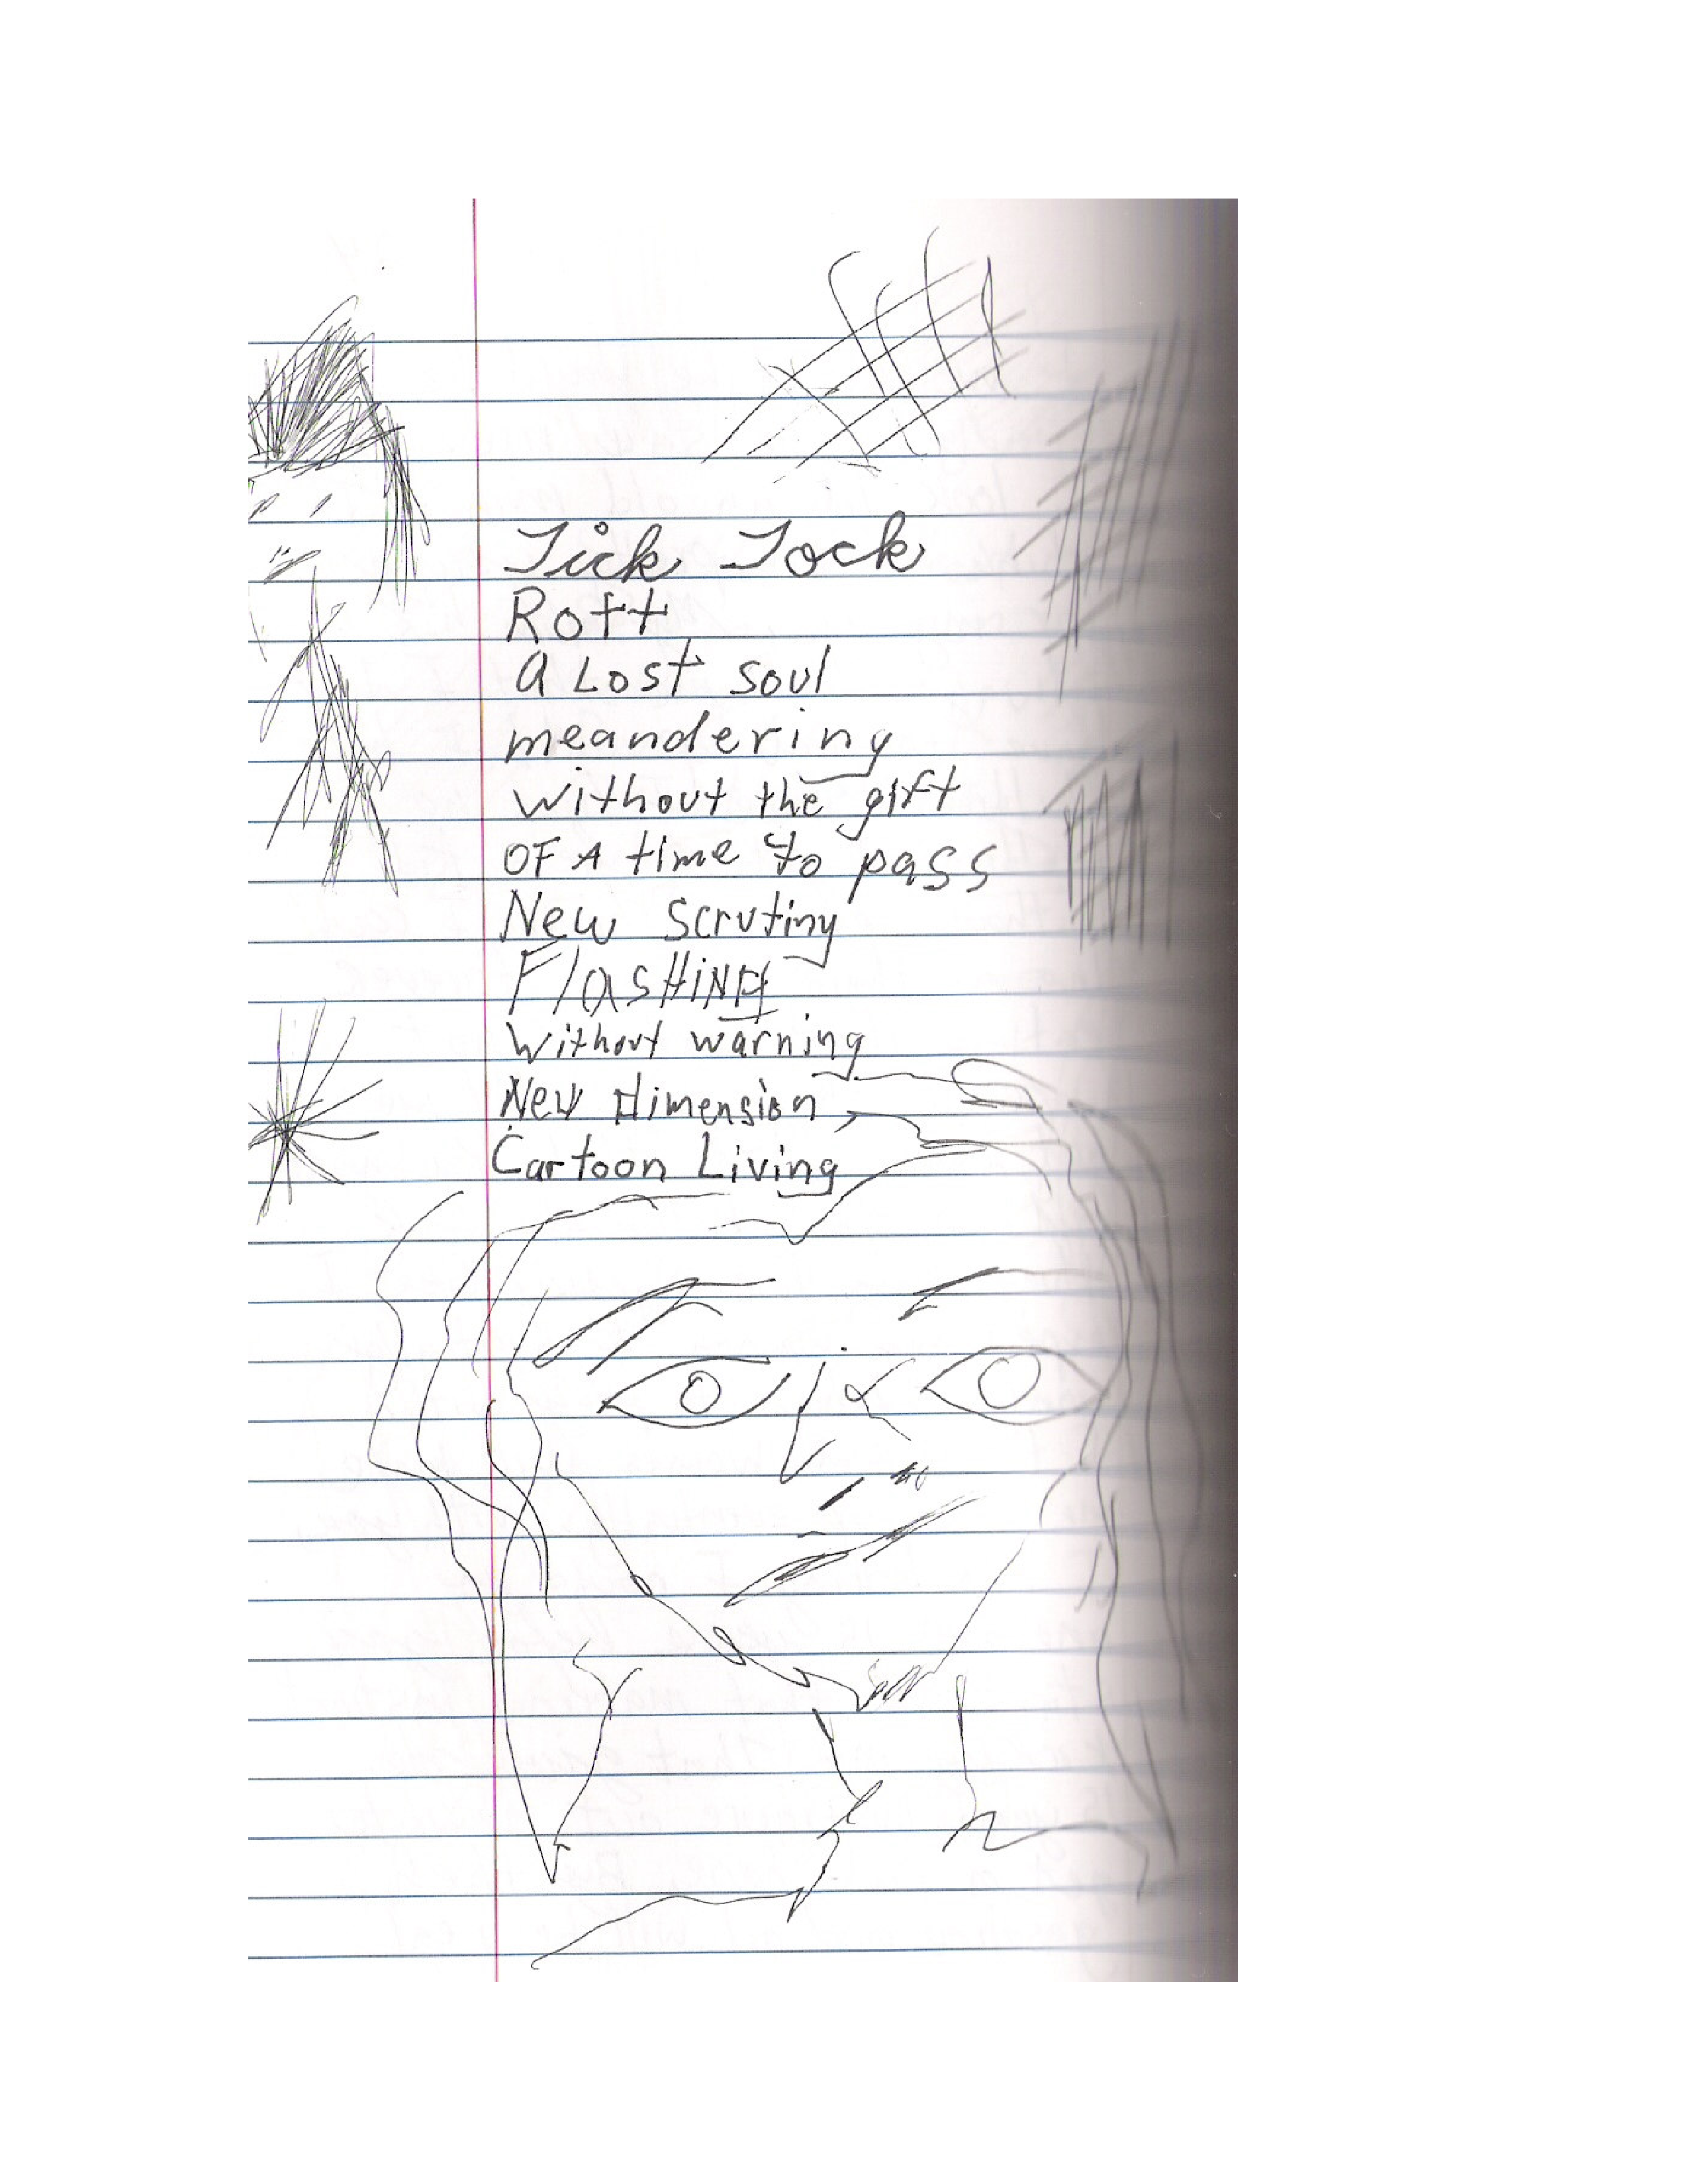 Tick Tock
Rott
a Lost soul
meandering
without the gift
OF A time to pass
New scrutiny
FlasHiNG
without warning
New dimension,
Cartoon Living